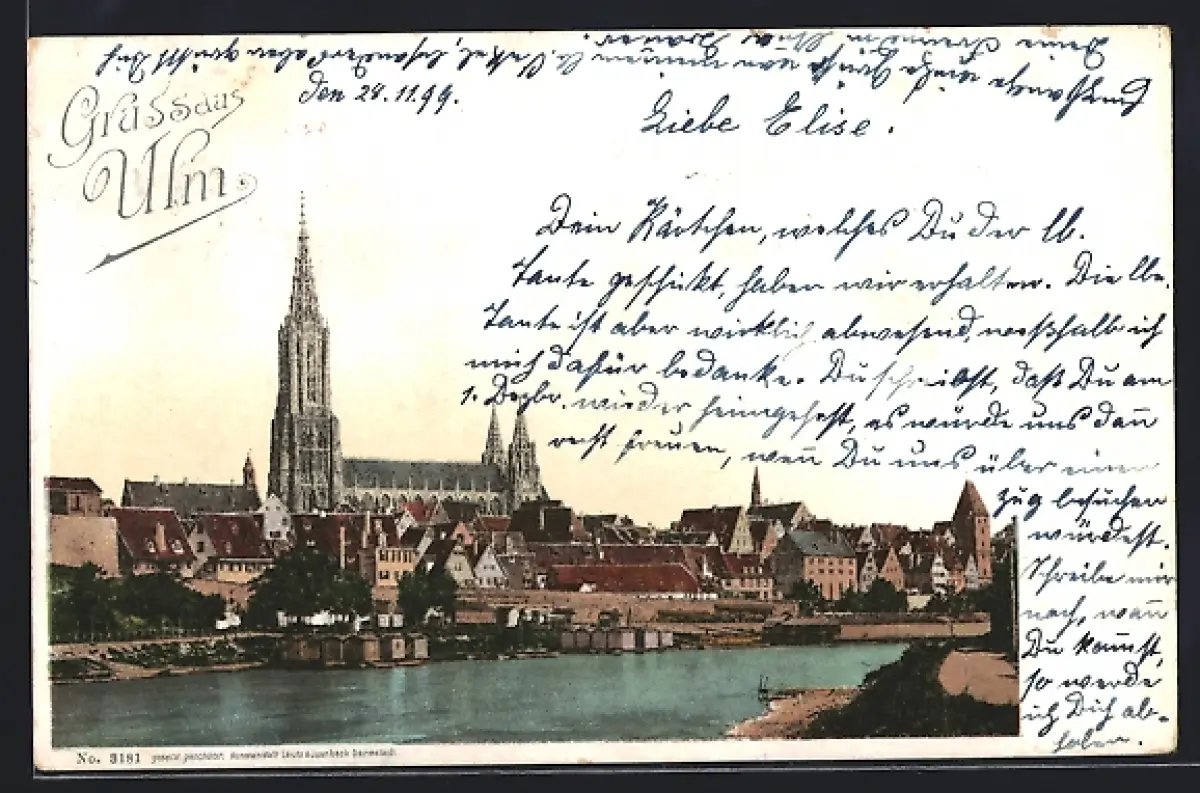 Grüss aus
Ulm.
Den 28.11.99.
Liebe Elise.
Dein Kärtchen, welches Du der lb.
Tante geschickt, haben wir erhalten. Die lbe.
Tante ist aber wirklich abwesend, weßhalb ich
mich dafür bedanke. Du schreibst, daß Du am
1. Dezbr. wieder heimgehst, es würde uns dan̄
recht freuen, wen̄ Du uns über einen
Zug besuchen
würdest.
Schreibe mir
noch, wan̄
Du kom̄st,
so werde
ich Dich ab-
holen.
grüßt Dich
Deine Freundin
No. 3181 gesetzl. geschützt. Kunstanstalt Lautz & Isenbeck Darmstadt.